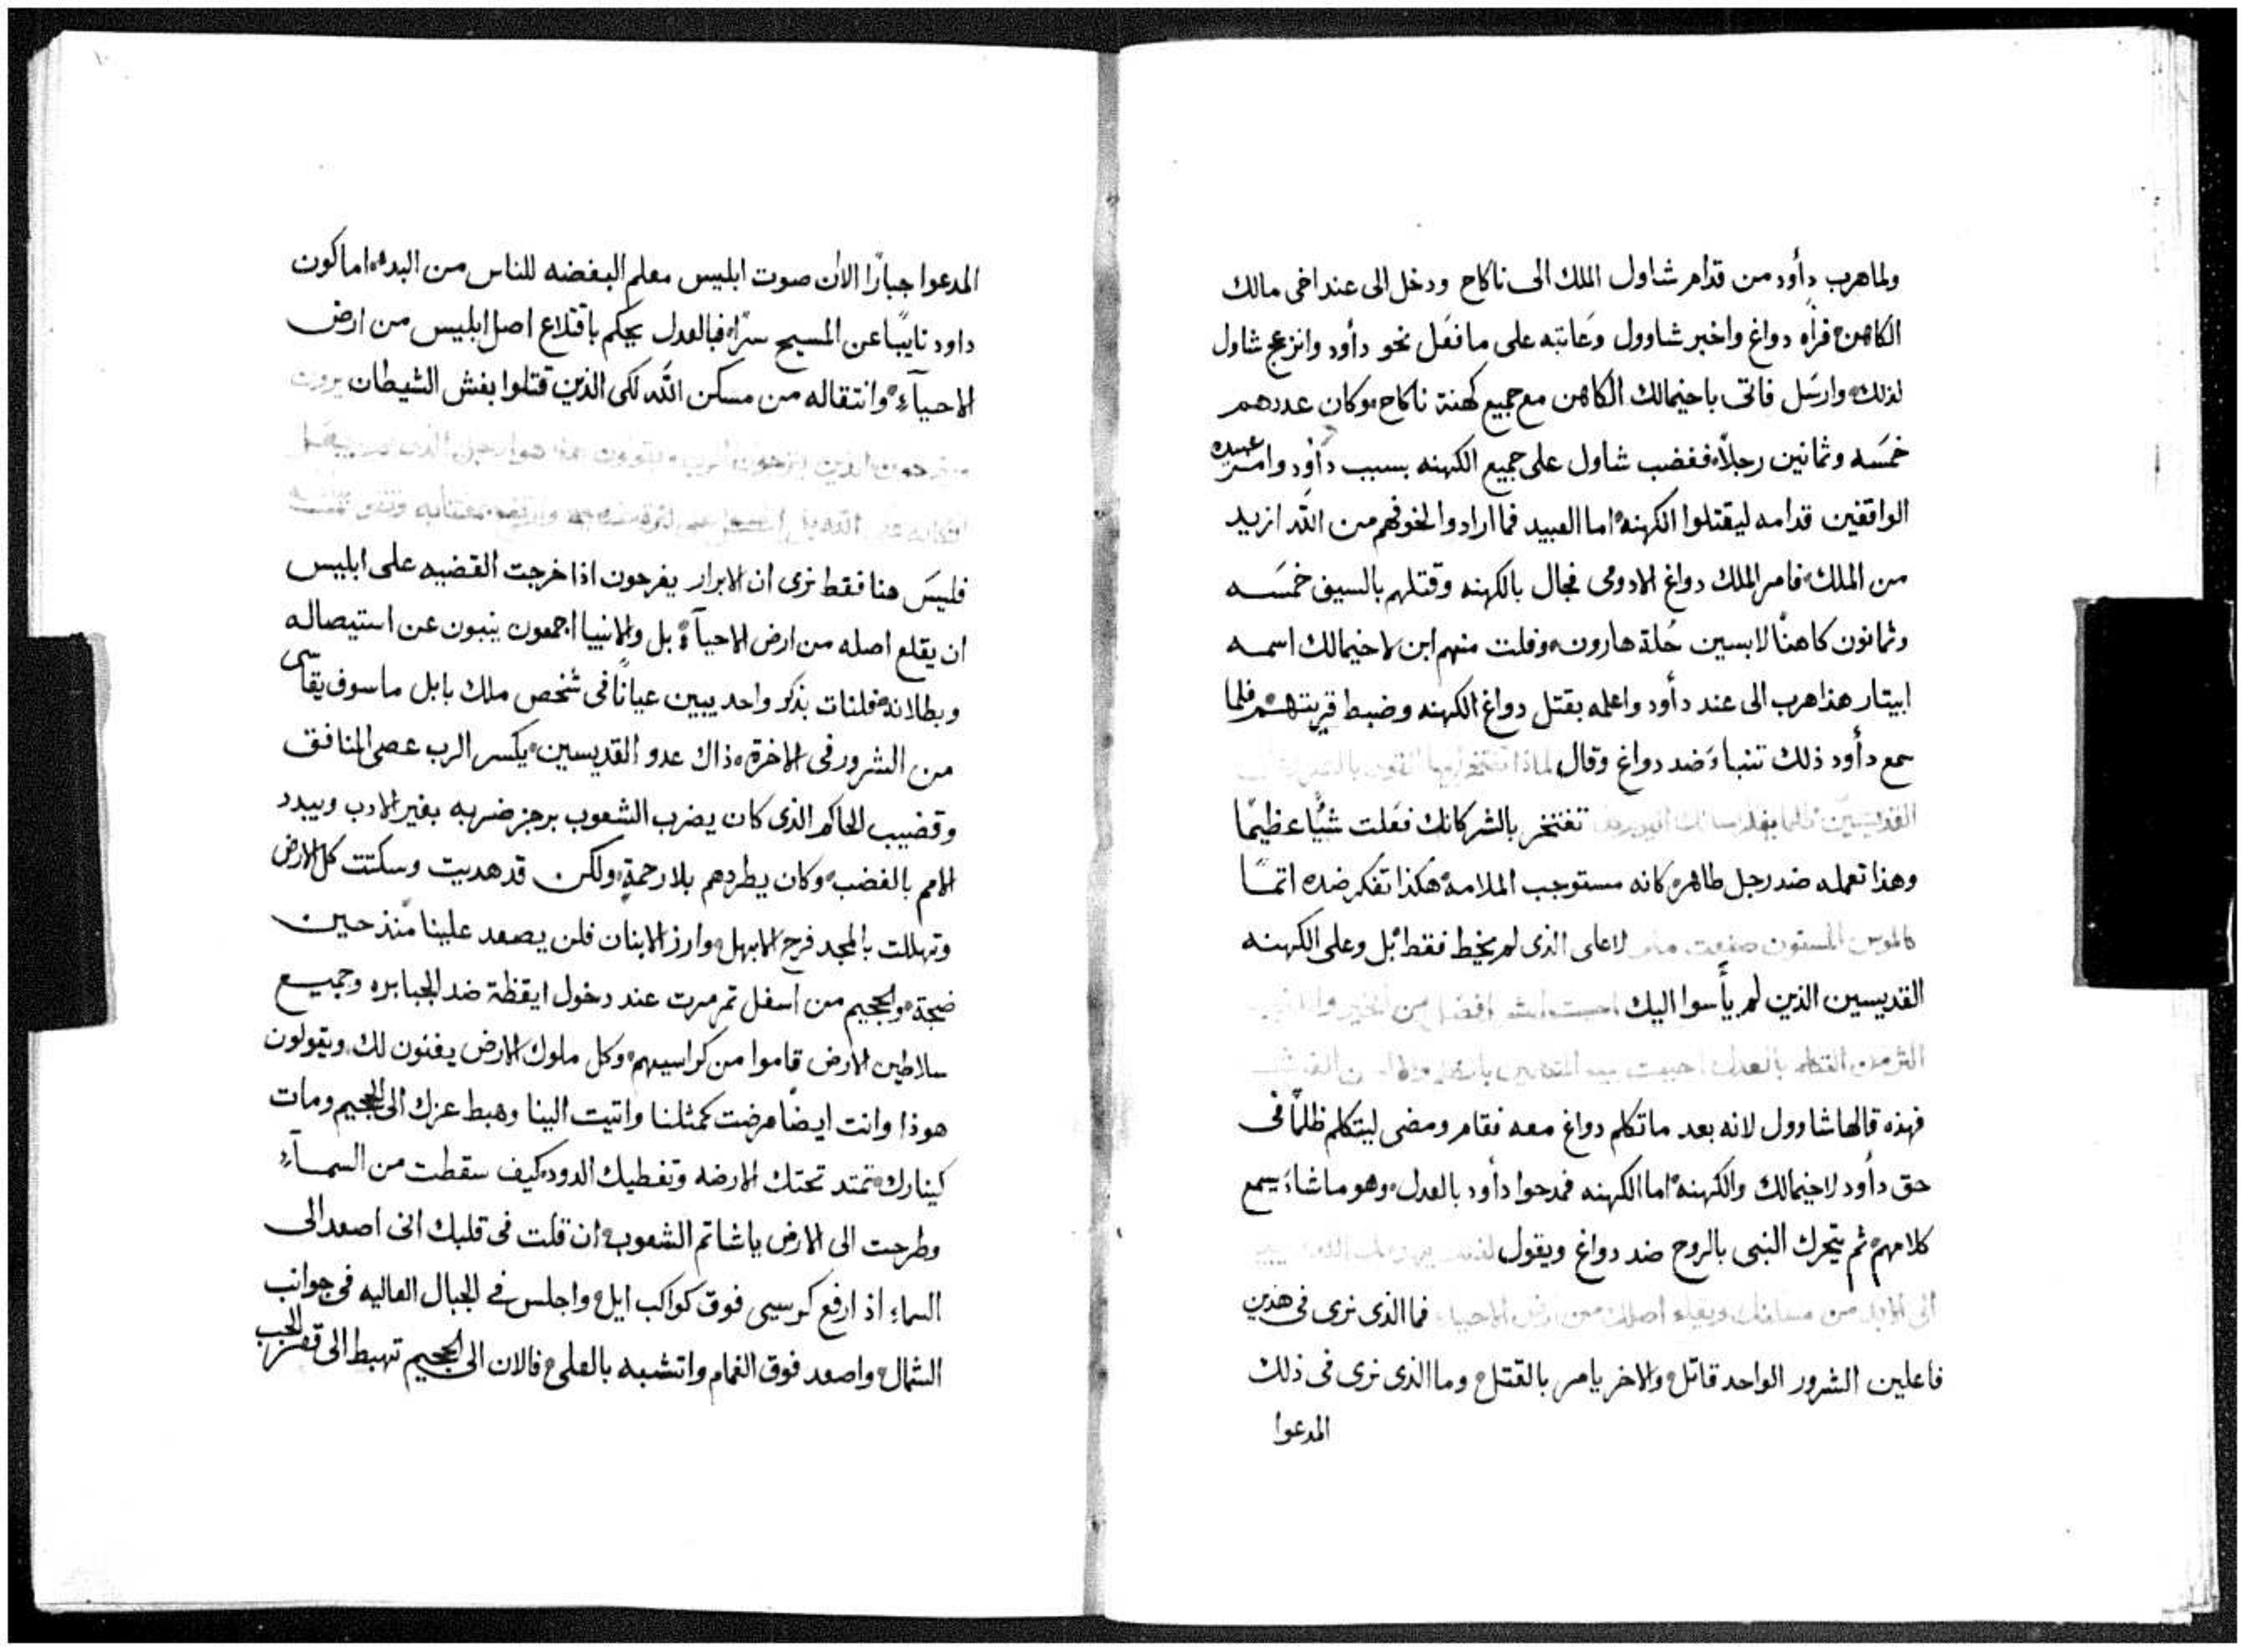 ولما هرب داود من قدام شاول الملك الى ناكاح ودخل الى عند اخى مالك
الكاهن فرأه دواغ واخبر شاوول وعاتبه على ما فعَل نحو دأود وانزعج شاول
لذلك وارسَل فاتى باخيمالك الكاهن مع جميع كهنة ناكاح وكان عددهم
خمسَه وثمانين رجلاً فغضب شاول على جميع الكهنه بسبب دأود وامر عبيده
الواقفين قدامه ليقتلوا الكهنه اما العبيد فما ارادوا لخوفهم من الله ازيد
من الملك فامر الملك دواغ الادومى فجال بالكهنه وقتلهم بالسيف خمسَه
وثمانون كاهنًا لابسين حُلة هارون وفلت منهم ابن لاخيمالك اسمه
ابيتار هذا هرب الى عند دأود واعلمه بقتل دواغ الكهنه وضبط قريتهم فلما
سمع دأود ذلك تنباءَ ضد دواغ وقال لماذا تفتخر ايها القوى بالشر
القديسين تفتخر بالشر كانك فعَلت شيًا عظيمًا
وهذا تعمله ضد رجل طاهر كانه مستوجب الملامه هكذا تفكر ضده اتمًا
كالموس المسنون صنعت لا على الذى لم يخط فقط بل وعلى الكهنه
القديسين الذين لم يأسوا اليك احببت الشر افضل من الخير
اكثر من التكلم بالعدل احببت
فهذه قالها شاوول لانه بعد ما تكلم دواغ معه فقام ومضى ليتكلم ظلمًا فى
حق دأود لاخيمالك والكهنه اما الكهنه فمدحوا دأود بالعدل وهو ما شاءَ يسمع
كلامهم ثم يتحرك النبى بالروح ضد دواغ ويقول لذلك يهدمك الله
الى الابد من مسكنك ويقلع اصلك من ارض الاحياء فما الذى نرى فى هذين
فاعلين الشرور الواحد قاتل والاخر يامر بالقتل وما الذى نرى فى ذلك
المدعوا
المدعوا جبارًا الان صوت ابليس معلم البغضه للناس من البدء اما كون
داود نايبًا عن المسيح سرًا فبالعدل يحكم باقتلاع اصل ابليس من ارض
الاحيآءِ وانتقاله من مسكن الله لكى الذين قتلوا بغش الشيطان يرون
هوذا الرجل الذى لم يجعل
فليسَ هنا فقط نرى ان الابرار يفرحون اذا خرجت القضيه على ابليس
ان يقلع اصله من ارض الاحيآءِ بل والانبيا اجمعون ينبون عن استيصاله
وبطلانه فلنات بذكر واحد يبين عيانًا فى شخص ملك بابل ما سوف يقاسى
من الشرور فى الاخرة ذاك عدو القديسين يكسر الرب عصى المنافق
وقضيب الحاكم الذى كان يضرب الشعوب برجز ضربه بغير الادب ويبدد
الامم بالغضب وكان يطردهم بلا رحمةٍ ولكن قد هديت وسكتت كل الارض
وتهللت بالمجد فرح الابهل وارز الابنان فلن يصعد علينا منذ حين
ضجة والجحيم من اسفل تمرمرت عند دخول ايقظة ضد الجبابره وجميع
سلاطين الارض قاموا من كراسيهم وكل ملوك الارض يغنون لك ويقولون
هوذا وانت ايضًا مرضت كمثلنا واتيت الينا وهبط عزك الى الجحيم ومات
كينارك تمتد تحتك الارضه وتغطيك الدود كيف سقطت من السمآءِ
وطرحت الى الارض يا شاتم الشعوب ان قلت فى قلبك انى اصعد الى
السماءِ اذ ارفع كرسيى فوق كواكب ايل واجلس فى الجبال العاليه فى جوانب
الشمال واصعد فوق الغمام واتشبه بالعلى فالان الى الجحيم تهبط الى قعر الجب